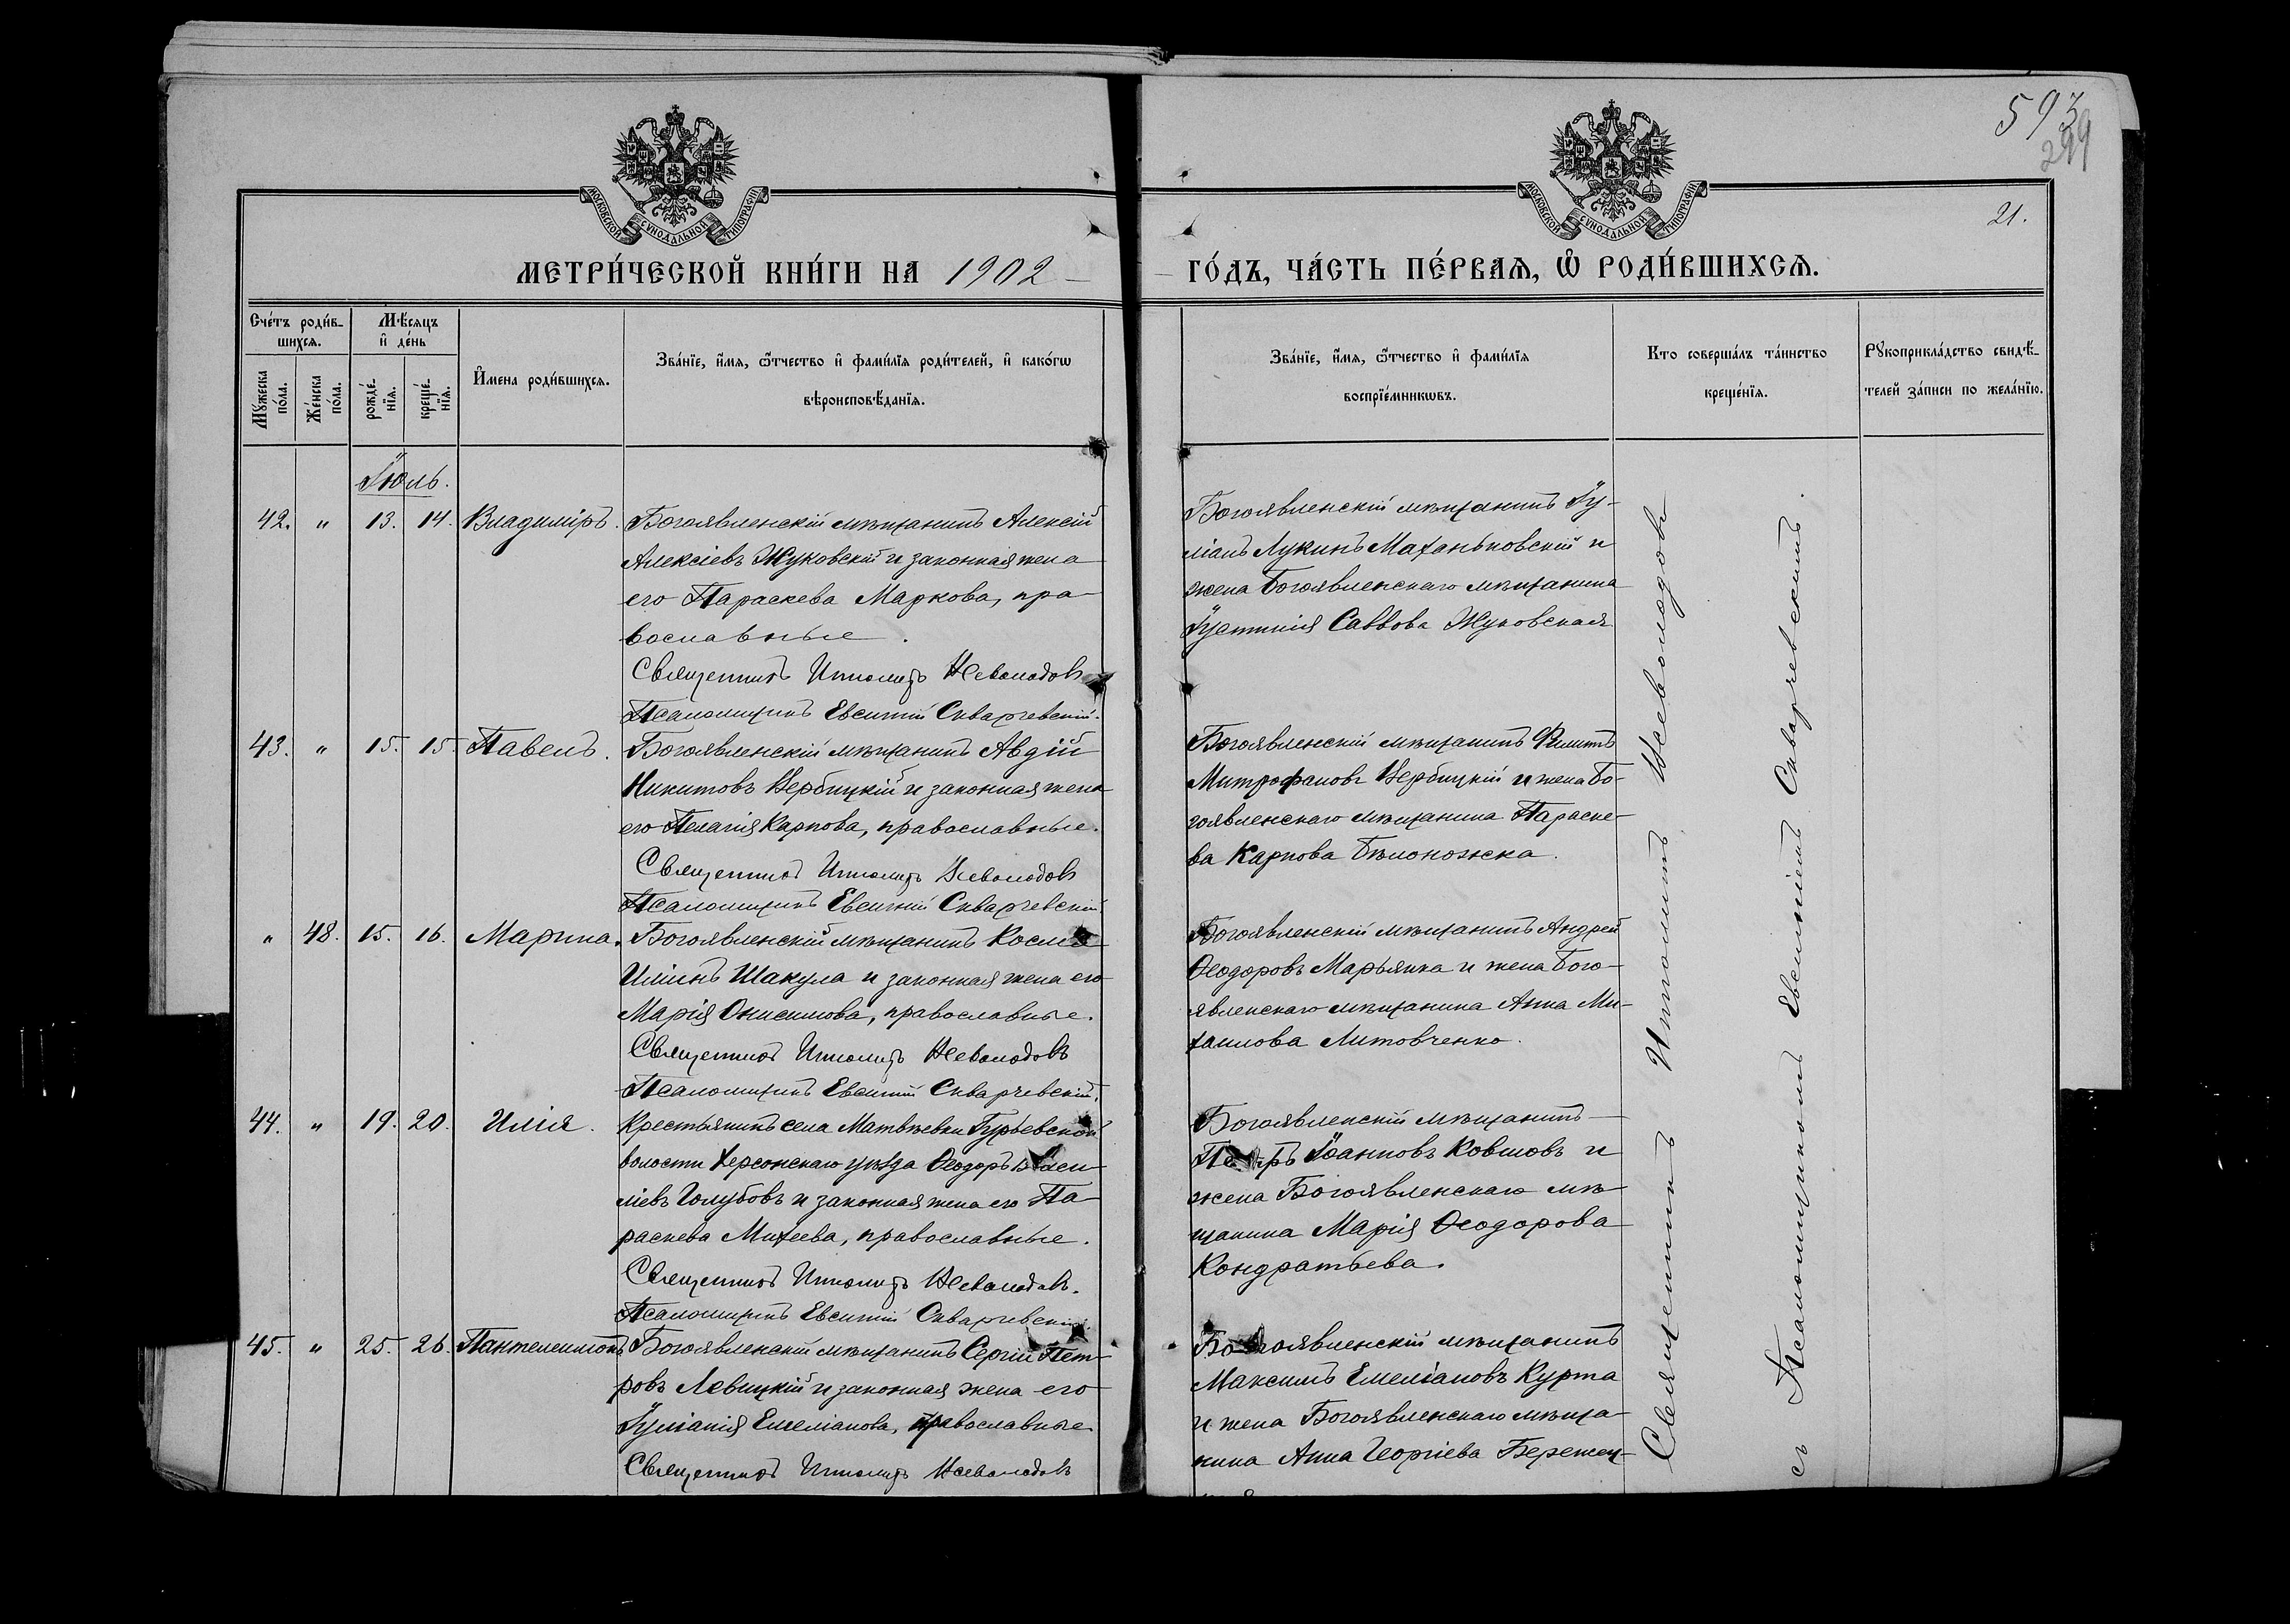 593
299
21.
МОСКОВСКОЙ СѴНОДАЛЬНОЙ ТИПОГРАФІИ
МОСКОВСКОЙ СѴНОДАЛЬНОЙ ТИПОГРАФІИ
МЕТРИ́ЧЕСКОЙ КНИ́ГИ НА 1902
ГО́ДЪ, ЧА́СТЬ ПЕ́РВАѦ, Ѡ҆ РОДИ́ВШИХСѦ.
Сче́тъ роди́в-
шихсѧ.
Му́жеска по́ла.
Же́нска по́ла.
Мѣ́сѧцъ
и҆ де́нь
рожде́нїѧ.
креще́нїѧ.
И҆мена роди́вшихсѧ.
Зва́нїе, и҆́мѧ, ѻ҆́тчество и҆ фами́лїѧ роди́телей, и҆ како́гѡ
вѣроисповѣ́данїѧ.
Зва́нїе, и҆́мѧ, ѻ҆́тчество и҆ фами́лїѧ
воспрїе́мникѡвъ.
Кто соверша́лъ та́инство
креще́нїѧ.
Рꙋкоприкла́дство свидѣ́-
телей за́писи по жела́нїю.
Іюль.
42. " 13. 14. Владиміръ. Богоявленскій мѣщанинъ Алексій
Алексіевъ Жуковскій и законная жена
его Параскева Маркова, пра-
вославные.
Священникъ Ипполитъ Всеволодовъ
Псаломщикъ Евсигній Скварчевскій.
Богоявленскій мѣщанинъ Іу-
ліанъ Лукинъ Маханьковскій и
жена Богоявленскаго мѣщанина
Іустинія Саввова Жуковская
43. " 15. 15. Павелъ. Богоявленскій мѣщанинъ Авдій
Никитовъ Вербицкій и законная жена
его Пелагія Карпова, православные.
Священникъ Ипполитъ Всеволодовъ
Псаломщикъ Евсигній Скварчевскій
Богоявленскій мѣщанинъ Филиппъ
Митрофановъ Вербицкій и жена Бо-
гоявленскаго мѣщанина Параске-
ва Карпова Бѣлоножка.
" 48. 15. 16. Марина. Богоявленскій мѣщанинъ Косма
Иліинъ Шакула и законная жена его
Марія Онисимова, православные.
Священникъ Ипполитъ Всеволодовъ
Псаломщикъ Евсигній Скварчевскій.
Богоявленскій мѣщанинъ Андрей
Ѳеодоровъ Марьянка и жена Бого-
явленскаго мѣщанина Анна Ми-
хаилова Литовченко.
44. " 19. 20. Илія. Крестьянинъ села Матвѣевки Гурьевской
волости Херсонскаго уѣзда Ѳеодоръ Васи-
ліевъ Голубовъ и законная жена его Па-
раскева Михеева, православные.
Священникъ Ипполитъ Всеволодовъ.
Псаломщикъ Евсигній Скварчевскій.
Богоявленскій мѣщанинъ
Петръ Іоанновъ Ковшовъ и
жена Богоявленскаго мѣ-
щанина Марія Ѳеодорова
Кондратьева.
45. " 25. 26. Пантелеимонъ Богоявленскій мѣщанинъ Сергій Пет-
ровъ Левицкій и законная жена его
Іуліанія Емеліанова, православные
Священникъ Ипполитъ Всеволодовъ
Богоявленскій мѣщанинъ
Максимъ Емеліановъ Курта
и жена Богоявленскаго мѣща-
нина Анна Георгіева Бережец-
Священникъ Ипполитъ Всеволодовъ
съ Псаломщикомъ Евсигніемъ Скварчевскимъ.